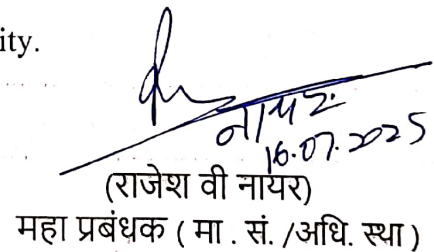 ity.
नायर
16.07.2025
(राजेश वी नायर)
महा प्रबंधक ( मा . सं. /अधि. स्था )